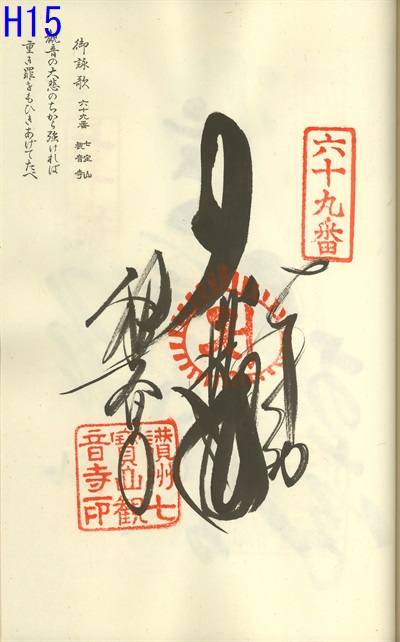 H15
御詠歌 六十九番 七宝山
観音寺
観音の大悲のちから強ければ
重き罪をもひきあげてたべ
六十九番
奉納
讃州七
寳山観
音寺印